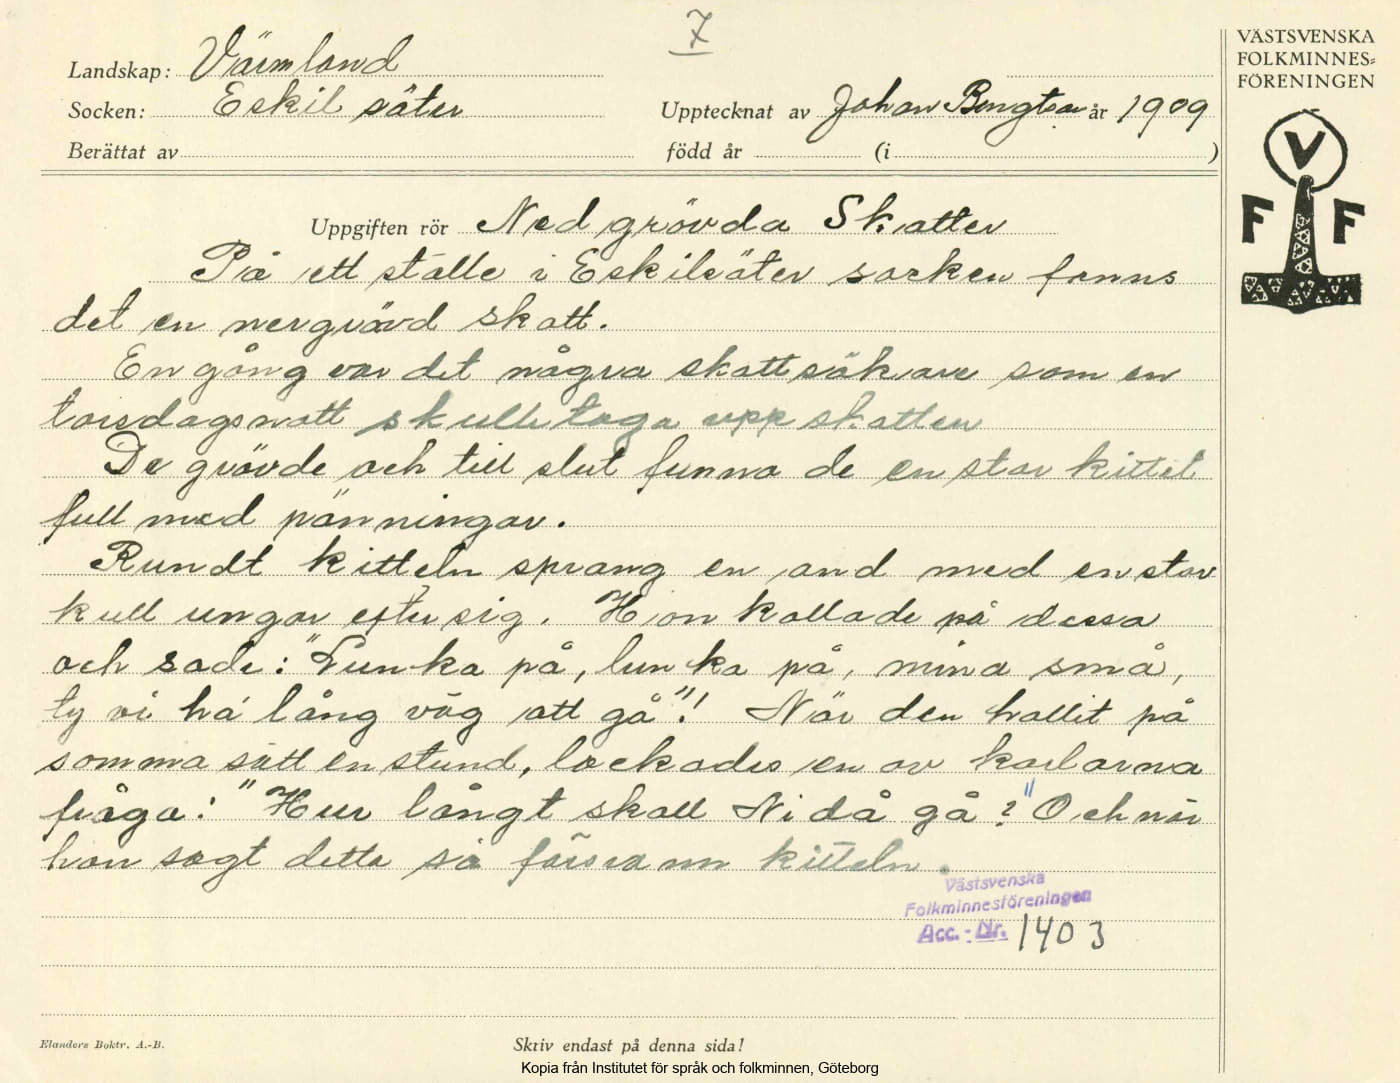 7
VÄSTSVENSKA
FOLKMINNES=
FÖRENINGEN
V
F F
Landskap: Värmland
Socken: Eskilsäter Upptecknat av Johan Bengtson år 1909
Berättat av född år (i )
Uppgiften rör Nedgrövda Skatter
På ett ställe i Eskilsäter socken fanns
det en nergrävd skatt.
En gång var det några skattsökare som en
torsdagsnatt skulle taga upp skatten
De grävde och till slut funno de en stor kittel
full med pänningar.
Rundt kitteln sprang en and med en stor
kull ungar efter sig. Hon kallade på dessa
och sade: "Lunka på, lunka på, mina små,
ty vi ha lång väg att gå"! När den hallit på
somma sätt en stund, lockades en av karlarna
fråga: "Hur långt skall Ni då gå?" Och når
han sagt detta så försvann kitteln.
Västsvenska
Folkminnesföreningen
Acc.-Nr. 1403
Elanders Boktr. A.-B.
Skriv endast på denna sida!
Kopia från Institutet för språk och folkminnen, Göteborg